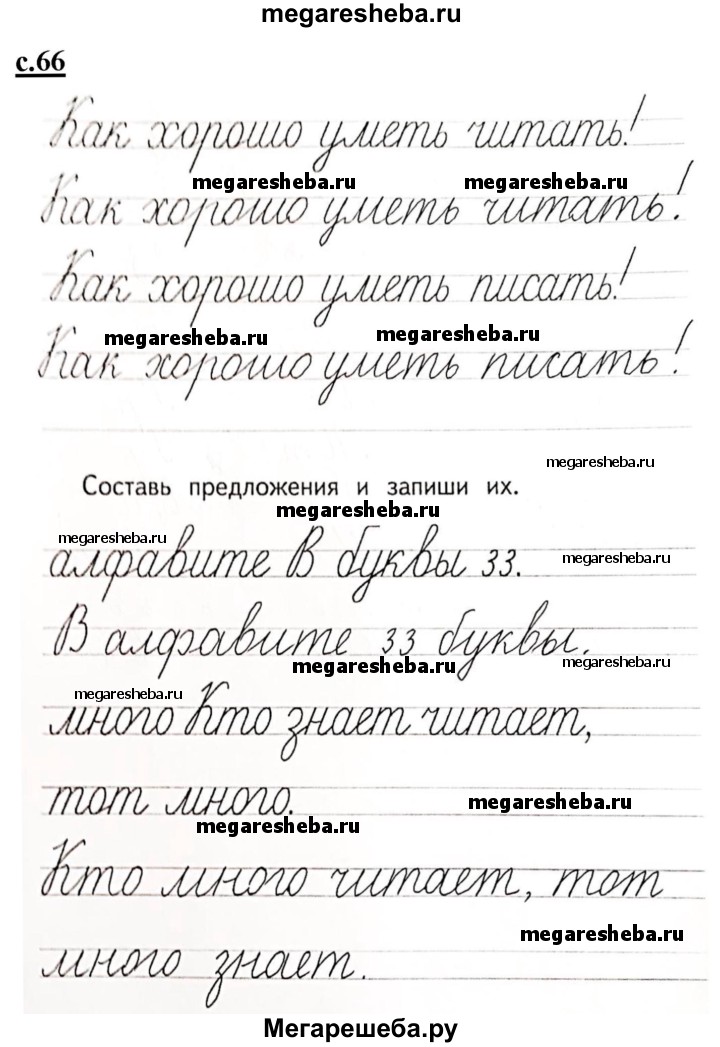 megaresheba.ru
с.66
Как хорошо уметь читать!
megaresheba.ru megaresheba.ru
Как хорошо уметь читать!
Как хорошо уметь писать!
megaresheba.ru megaresheba.ru
Как хорошо уметь писать!
megaresheba.ru
Составь предложения и запиши их.
megaresheba.ru
megaresheba.ru megaresheba.ru
алфавите В буквы 33.
В алфавите 33 буквы.
megaresheba.ru megaresheba.ru
megaresheba.ru
много Кто знает читает,
тот много.
megaresheba.ru
megaresheba.ru
Кто много читает, тот
megaresheba.ru
много знает.
Мегарешеба.ру